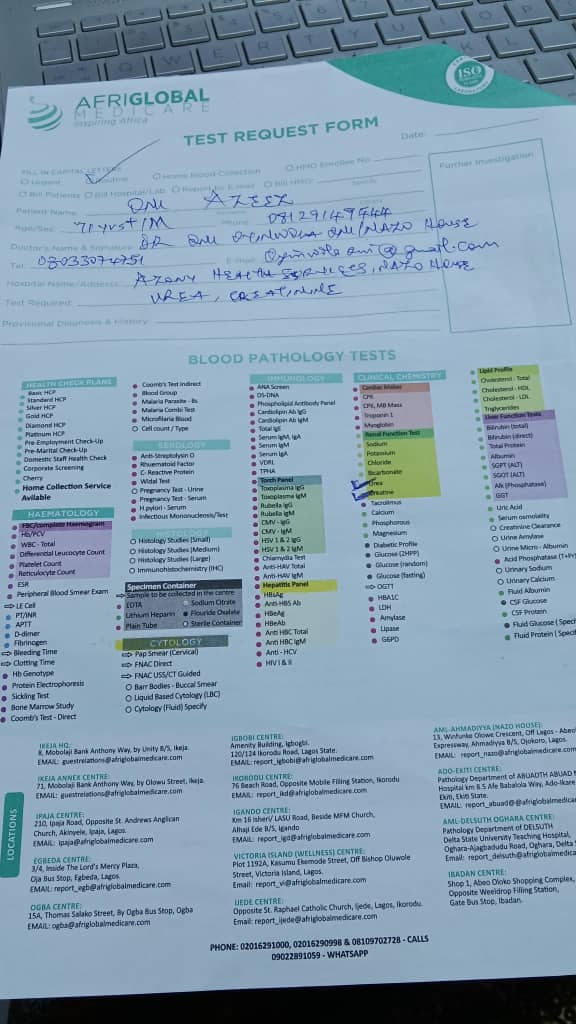 AFRIGLOBAL
MEDICARE
Inspiring Africa
ISO
TEST REQUEST FORM
Date:
FILL IN CAPITAL LETTERS
Urgent Routine Home Blood Collection HMO Enrollee No
Bill Patients Bill Hospital/Lab Report by E-mail Bill HMO: Specify
Further Investigation
Patient Name: ONI AZEEZ
Age/Sex: 71yrs+/M Phone: 08129149744
Doctor's Name & Signature: DR ONI OYINWOLA ONI/NAZO HOUSE
Tel: 08033074751 E-mail: Oyinwole.oni@gmail.com
Hospital Name/Address: AZONY HEALTH SERVICES, NAZO HOUSE
Test Required: UREA, CREATININE
Provisional Diagnosis & History:
BLOOD PATHOLOGY TESTS
HEALTH CHECK PLANS
Basic HCP
Standard HCP
Silver HCP
Gold HCP
Diamond HCP
Platinum HCP
Pre-Employment Check-Up
Pre-Marital Check-Up
Domestic Staff Health Check
Corporate Screening
Cherry
Home Collection Service
Avilable
HAEMATOLOGY
FBC/complete Haemogram
Hb/PCV
WBC - Total
Differential Leucocyte Count
Platelet Count
Reticulocyte Count
ESR
Peripheral Blood Smear Exam
LE Cell
PT/INR
APTT
D-dimer
Fibrinogen
Bleeding Time
Clotting Time
Hb Genotype
Protein Electrophoresis
Sickling Test
Bone Marrow Study
Coomb's Test - Direct
Coomb's Test Indirect
Blood Group
Malaria Parasite - Bs
Malaria Combi Test
Microfilaria Blood
Cell count / Type
SEROLOGY
Anti-Streptolysin O
Rhuematoid Factor
C- Reactive Protein
Widal Test
Pregnancy Test - Urine
Pregnancy Test - Serum
H.pylori - Serum
Infectious Mononucleosis/Test
Histology Studies (Small)
Histology Studies (Medium)
Histology Studies (Large)
Immunohistochemistry (IHC)
Specimen Container
Sample to be collected in the centre
EDTA Sodium Citrate
Lithium Heparin Flouride Oxalate
Plain Tube Sterile Container
CYTOLOGY
Pap Smear (Cervical)
FNAC Direct
FNAC USS/CT Guided
Barr Bodies - Buccal Smear
Liquid Based Cytology (LBC)
Cytology (Fluid) Specify
IMMUNOLOGY
ANA Screen
DS-DNA
Phospholipid Antibody Panel
Cardiolipin Ab IgG
Cardiolipin Ab IgM
Total IgE
Serum IgM, IgA
Serum IgM
Serum IgA
VDRL
TPHA
Torch Panel
Toxoplasma IgG
Toxoplasma IgM
Rubella IgG
Rubella IgM
CMV - IgG
CMV - IgM
HSV 1 & 2 IgG
HSV 1 & 2 IgM
Chlamydia Test
Anti-HAV Total
Anti-HAV IgM
Hepatitis Panel
HBsAg
Anti-HBS Ab
HBeAg
HBeAb
Anti HBC Total
Anti HBC IgM
Anti - HCV
HIV I & II
CLINICAL CHEMISTRY
Cardiac Maker
CPK
CPK, MB Mass
Troponin 1
Myoglobin
Renal Function Test
Sodium
Potassium
Chloride
Bicarbonate
Urea
Creatine
Tacrolimus
Calcium
Phosphorous
Magnesium
Diabetic Profile
Glucose (2HPP)
Glucose (random)
Glucose (fasting)
OGTT
HBA1C
LDH
Amylase
Lipase
G6PD
Lipid Profile
Cholesterol - Total
Cholesterol - HDL
Cholesterol - LDL
Triglycerides
Liver Function Tests
Bilirubin (total)
Bilirubin (direct)
Total Protein
Albumin
SGPT (ALT)
SGOT (ALT)
Alk (Phosphatase)
GGT
Uric Acid
Serum osmolality
Creatinine Clearance
Urine Amylase
Urine Micro - Albumin
Acid Phosphatase (T+Pr
Urinary Sodium
Urinary Calcium
Fluid Albumin
CSF Glucose
CSF Protein
Fluid Glucose (Speci
Fluid Protein (Specif
LOCATIONS
IKEJA HQ:
8, Mobolaji Bank Anthony Way, by Unity B/S, Ikeja.
EMAIL: guestrelations@afriglobalmedicare.com
IKEJA ANNEX CENTRE:
71, Mobolaji Bank Anthony Way, by Olowu Street, Ikeja.
EMAIL: guestrelations@afriglobalmedicare.com
IPAJA CENTRE:
210, Ipaja Road, Opposite St. Andrews Anglican
Church, Akinyele, Ipaja, Lagos.
EMAIL: ipaja@afriglobalmedicare.com
EGBEDA CENTRE:
3/4, Inside The Lord's Mercy Plaza,
Oja Bus Stop, Egbeda, Lagos.
EMAIL: report_egb@afriglobalmedicare.com
OGBA CENTRE:
15A, Thomas Salako Street, By Ogba Bus Stop, Ogba
EMAIL: ogba@afriglobalmedicare.com
IGBOBI CENTRE:
Amenity Building, Igbogbi.
120/124 Ikorodu Road, Lagos State.
EMAIL: report_igbobi@afriglobalmedicare.com
IKORODU CENTRE:
76 Beach Road, Opposite Mobile Filling Station, Ikorodu
EMAIL: report_ikd@afriglobalmedicare.com
IGANDO CENTRE:
Km 16 Isheri/ LASU Road, Beside MFM Church,
Alhaji Ede B/S, Igando
EMAIL: report_igd@afriglobalmedicare.com
VICTORIA ISLAND (WELLNESS) CENTRE:
Plot 1192A, Kasumu Ekemode Street, Off Bishop Oluwole
Street, Victoria Island, Lagos.
Email: report_vi@afriglobalmedicare.com
IJEDE CENTRE:
Opposite St. Raphael Catholic Church, Ijede, Lagos, Ikorodu.
Email: report_ijede@afriglobalmedicare.com
AML-AHMADIYYA (NAZO HOUSE):
13, Winfunke Olowe Crescent, Off Lagos - Abeo
Expressway, Ahmadiyya B/S, Ojokoro, Lagos.
EMAIL: report_nazo@afriglobalmedicare.com
ADO-EKITI CENTRE:
Pathology Department of ABUADTH ABUAD M
Hospital km 8.5 Afe Babalola Way, Ado-Ikare
Ekiti, Ekiti State.
EMAIL: report_abuad@@afriglobalmedicare
AML-DELSUTH OGHARA CENTRE:
Pathology Department of DELSUTH
Delta State University Teaching Hospital,
Oghara-Ajagbadudu Road, Oghara, Delta
Email: report_delsuth@afriglobalmedica
IBADAN CENTRE:
Shop 1, Abeo Oloko Shopping Complex,
Opposite Weeldrop Filling Station,
Gate Bus Stop, Ibadan.
PHONE: 02016291000, 02016290998 & 08109702728 - CALLS
09022891059 - WHATSAPP